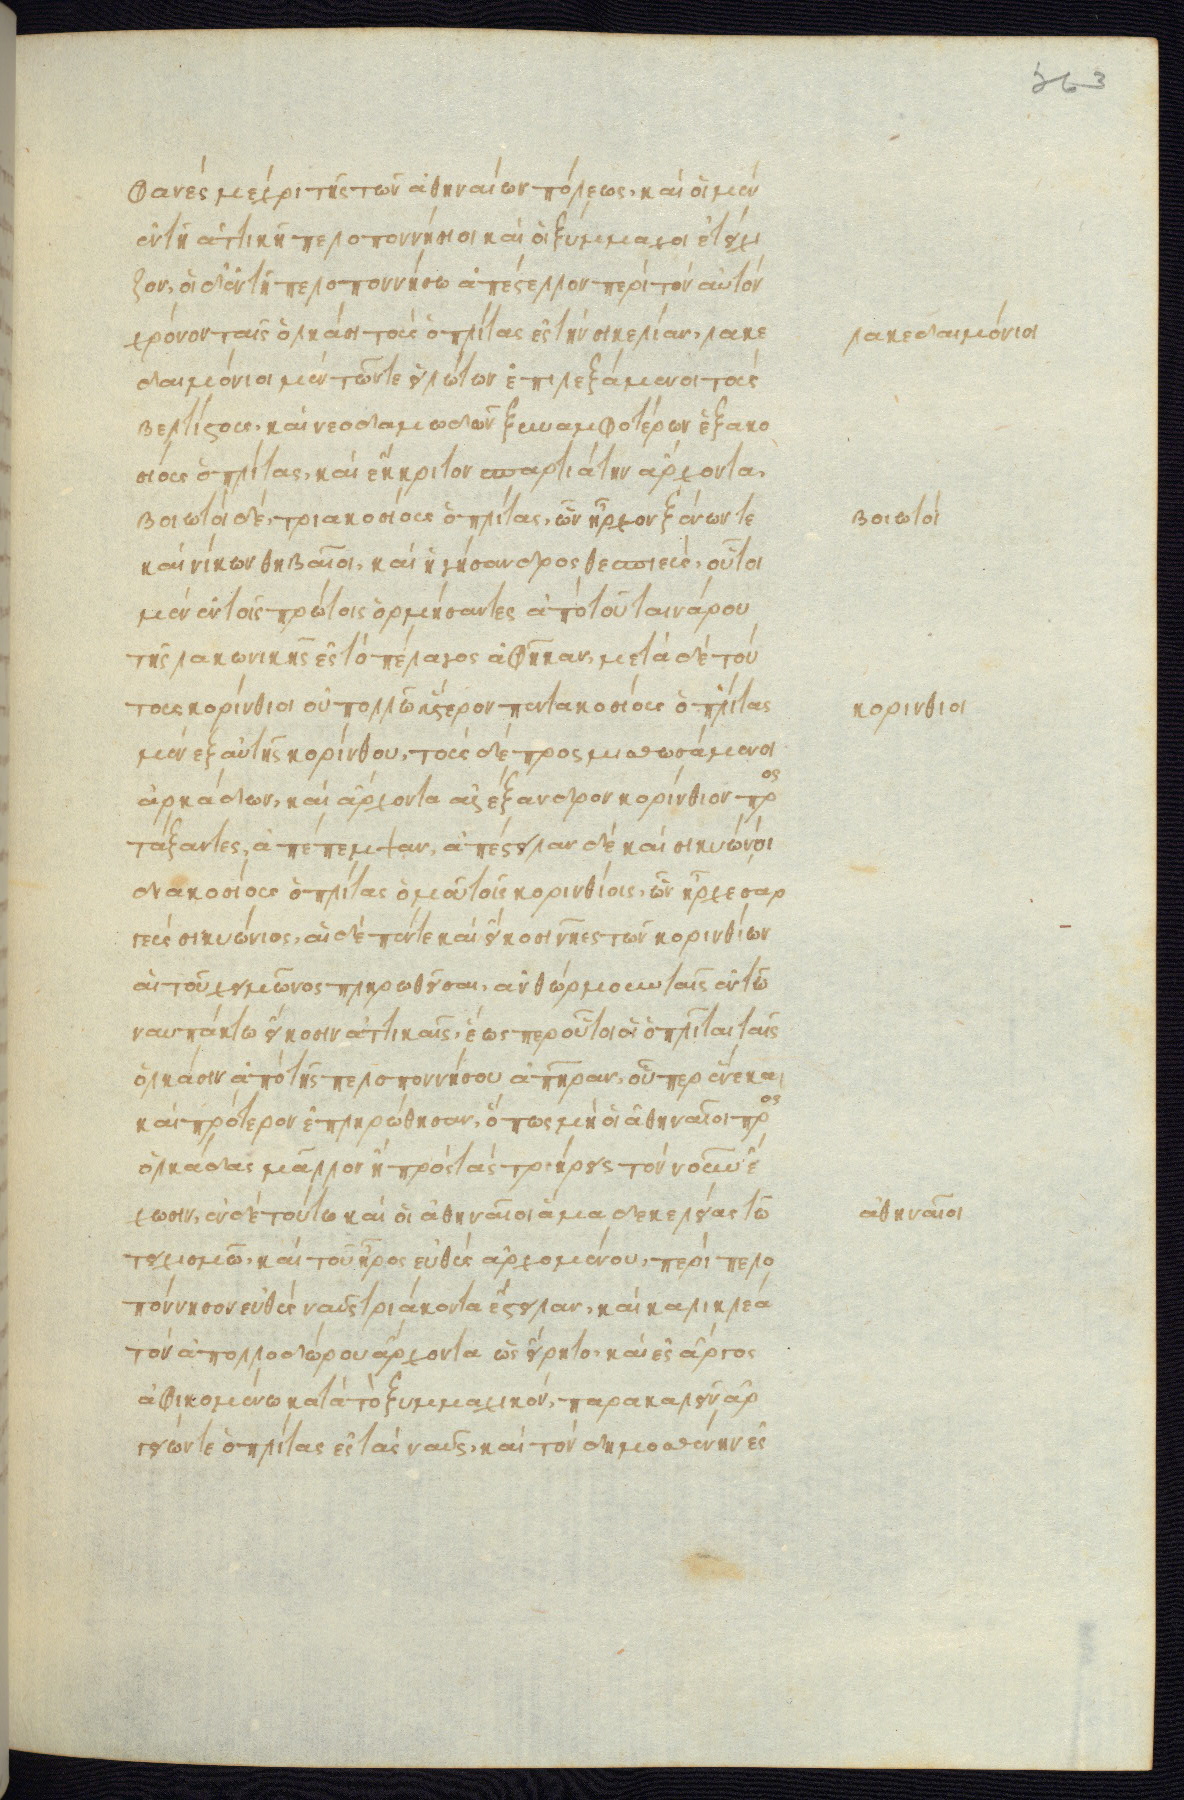 363
φανές μέχρι τῆς τῶν ἀθηναίων πόλεως, καὶ οἱ μὲν
ἐν τῆ ἀττικῆ πελοποννήσιοι καὶ οἱ ξύμμαχοι ἐτείχι
ζον, οἱ δ᾽ ἐν τῆ πελοποννήσω ἀπέστελλον περὶ τὸν αὐτὸν
χρόνον ταῖς ὁλκάσι τοὺς ὁπλίτας ἐς τὴν σικελίαν, λακε
λακεδαιμόνιοι
δαιμόνιοι μὲν τῶν τε εἱλώτων ἐπιλεξάμενοι τοὺς
βελτίστους, καὶ νεοδαμωδῶν ξυναμφοτέρων ἑξακο
σίους ὁπλίτας, καὶ ἔκκριτον σπαρτιάτην ἄρχοντα,
βοιωτοὶ δὲ, τριακοσίους ὁπλίτας, ὧν ἦρχον ξένων τε
βοιωτοὶ
καὶ νίκων θηβαῖοι, καὶ ἡγήσανδρος θεσπιεύς, οὗτοι
μὲν ἐν τοῖς πρώτοις ὁρμήσαντες ἀπὸ τοῦ ταινάρου
τῆς λακωνικῆς ἐς τὸ πέλαγος ἀφῆκαν, μετὰ δὲ τού
τους κορίνθιοι οὐ πολλῶ ὕστερον πεντακοσίους ὁπλίτας
κορίνθιοι
μὲν ἐξ αὐτῆς κορίνθου, τοὺς δὲ προςμισθωσάμενοι
ἀρκάδων, καὶ ἄρχοντα ἀλέξανδρον κορίνθιον πρὸς
τάξαντες, ἀπέπεμψαν, ἀπέστειλαν δὲ καὶ σικυώνιοι
διακοσίους ὁπλίτας ὁμοῦ τοῖς κορινθίοις, ὧν ἦρχε σαρ
γεὺς σικυώνιος, αἱ δὲ πέντε καὶ εἴκοσι νῆες τῶν κορινθίων
αἱ τοῦ χειμῶνος πληρωθεῖσαι, ἀνθώρμουν ταῖς ἐν τῶ
ναυπάκτω εἴκοσιν ἀττικαῖς, ἕως περ οὗτοι οἱ ὁπλῖται ταῖς
ὁλκάσιν ἀπὸ τῆς πελοποννήσου ἀπῆραν, οὗπερ ἕνεκα
καὶ πρότερον ἐπληρώθησαν, ὅπως μὴ οἱ ἀθηναῖοι πρὸς
ὁλκάδας μᾶλλον ἢ πρὸς τὰς τριήρεις τὸν νοῦν ἔ
χωσιν, ἐν δὲ τούτω καὶ οἱ ἀθηναῖοι ἅμα δεκελείας τῶ
ἀθηναῖοι
τειχισμῶ, καὶ τοῦ ἦρος εὐθὺς ἀρχομένου, περὶ πελο
πόννησον εὐθὺς ναῦς τριάκοντα ἔστειλαν, καὶ καλικλέα
τὸν ἀπολλοδώρου ἄρχοντα ὡς εἴρητο, καὶ ἐς ἄργος
ἀφικομένω κατὰ τὸ ξυμμαχικόν, παρακαλεῖν ἀρ
γείων τε ὁπλίτας ἐς τὰς ναῦς, καὶ τὸν δημοσθένην ἐς